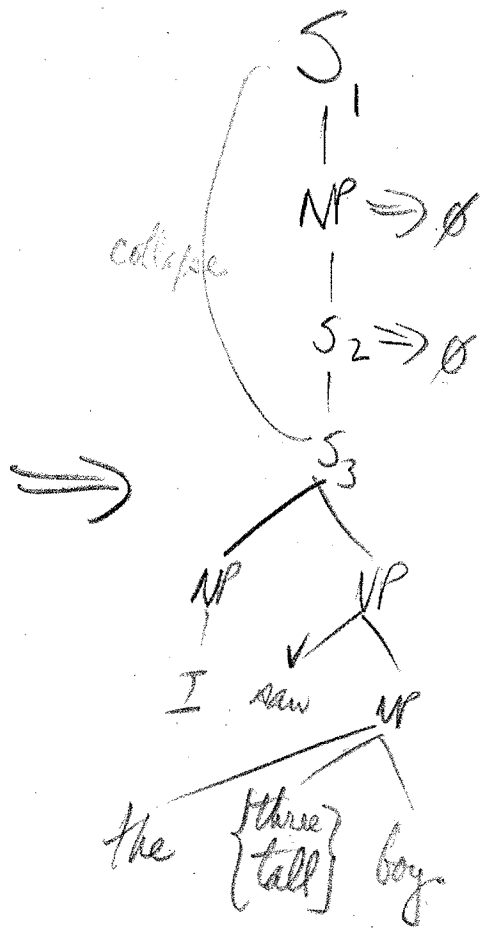 S1
NP ⇒ ∅
collapse
S2 ⇒ ∅
S3
⇒
NP VP
I V saw NP
the {three tall} boy.